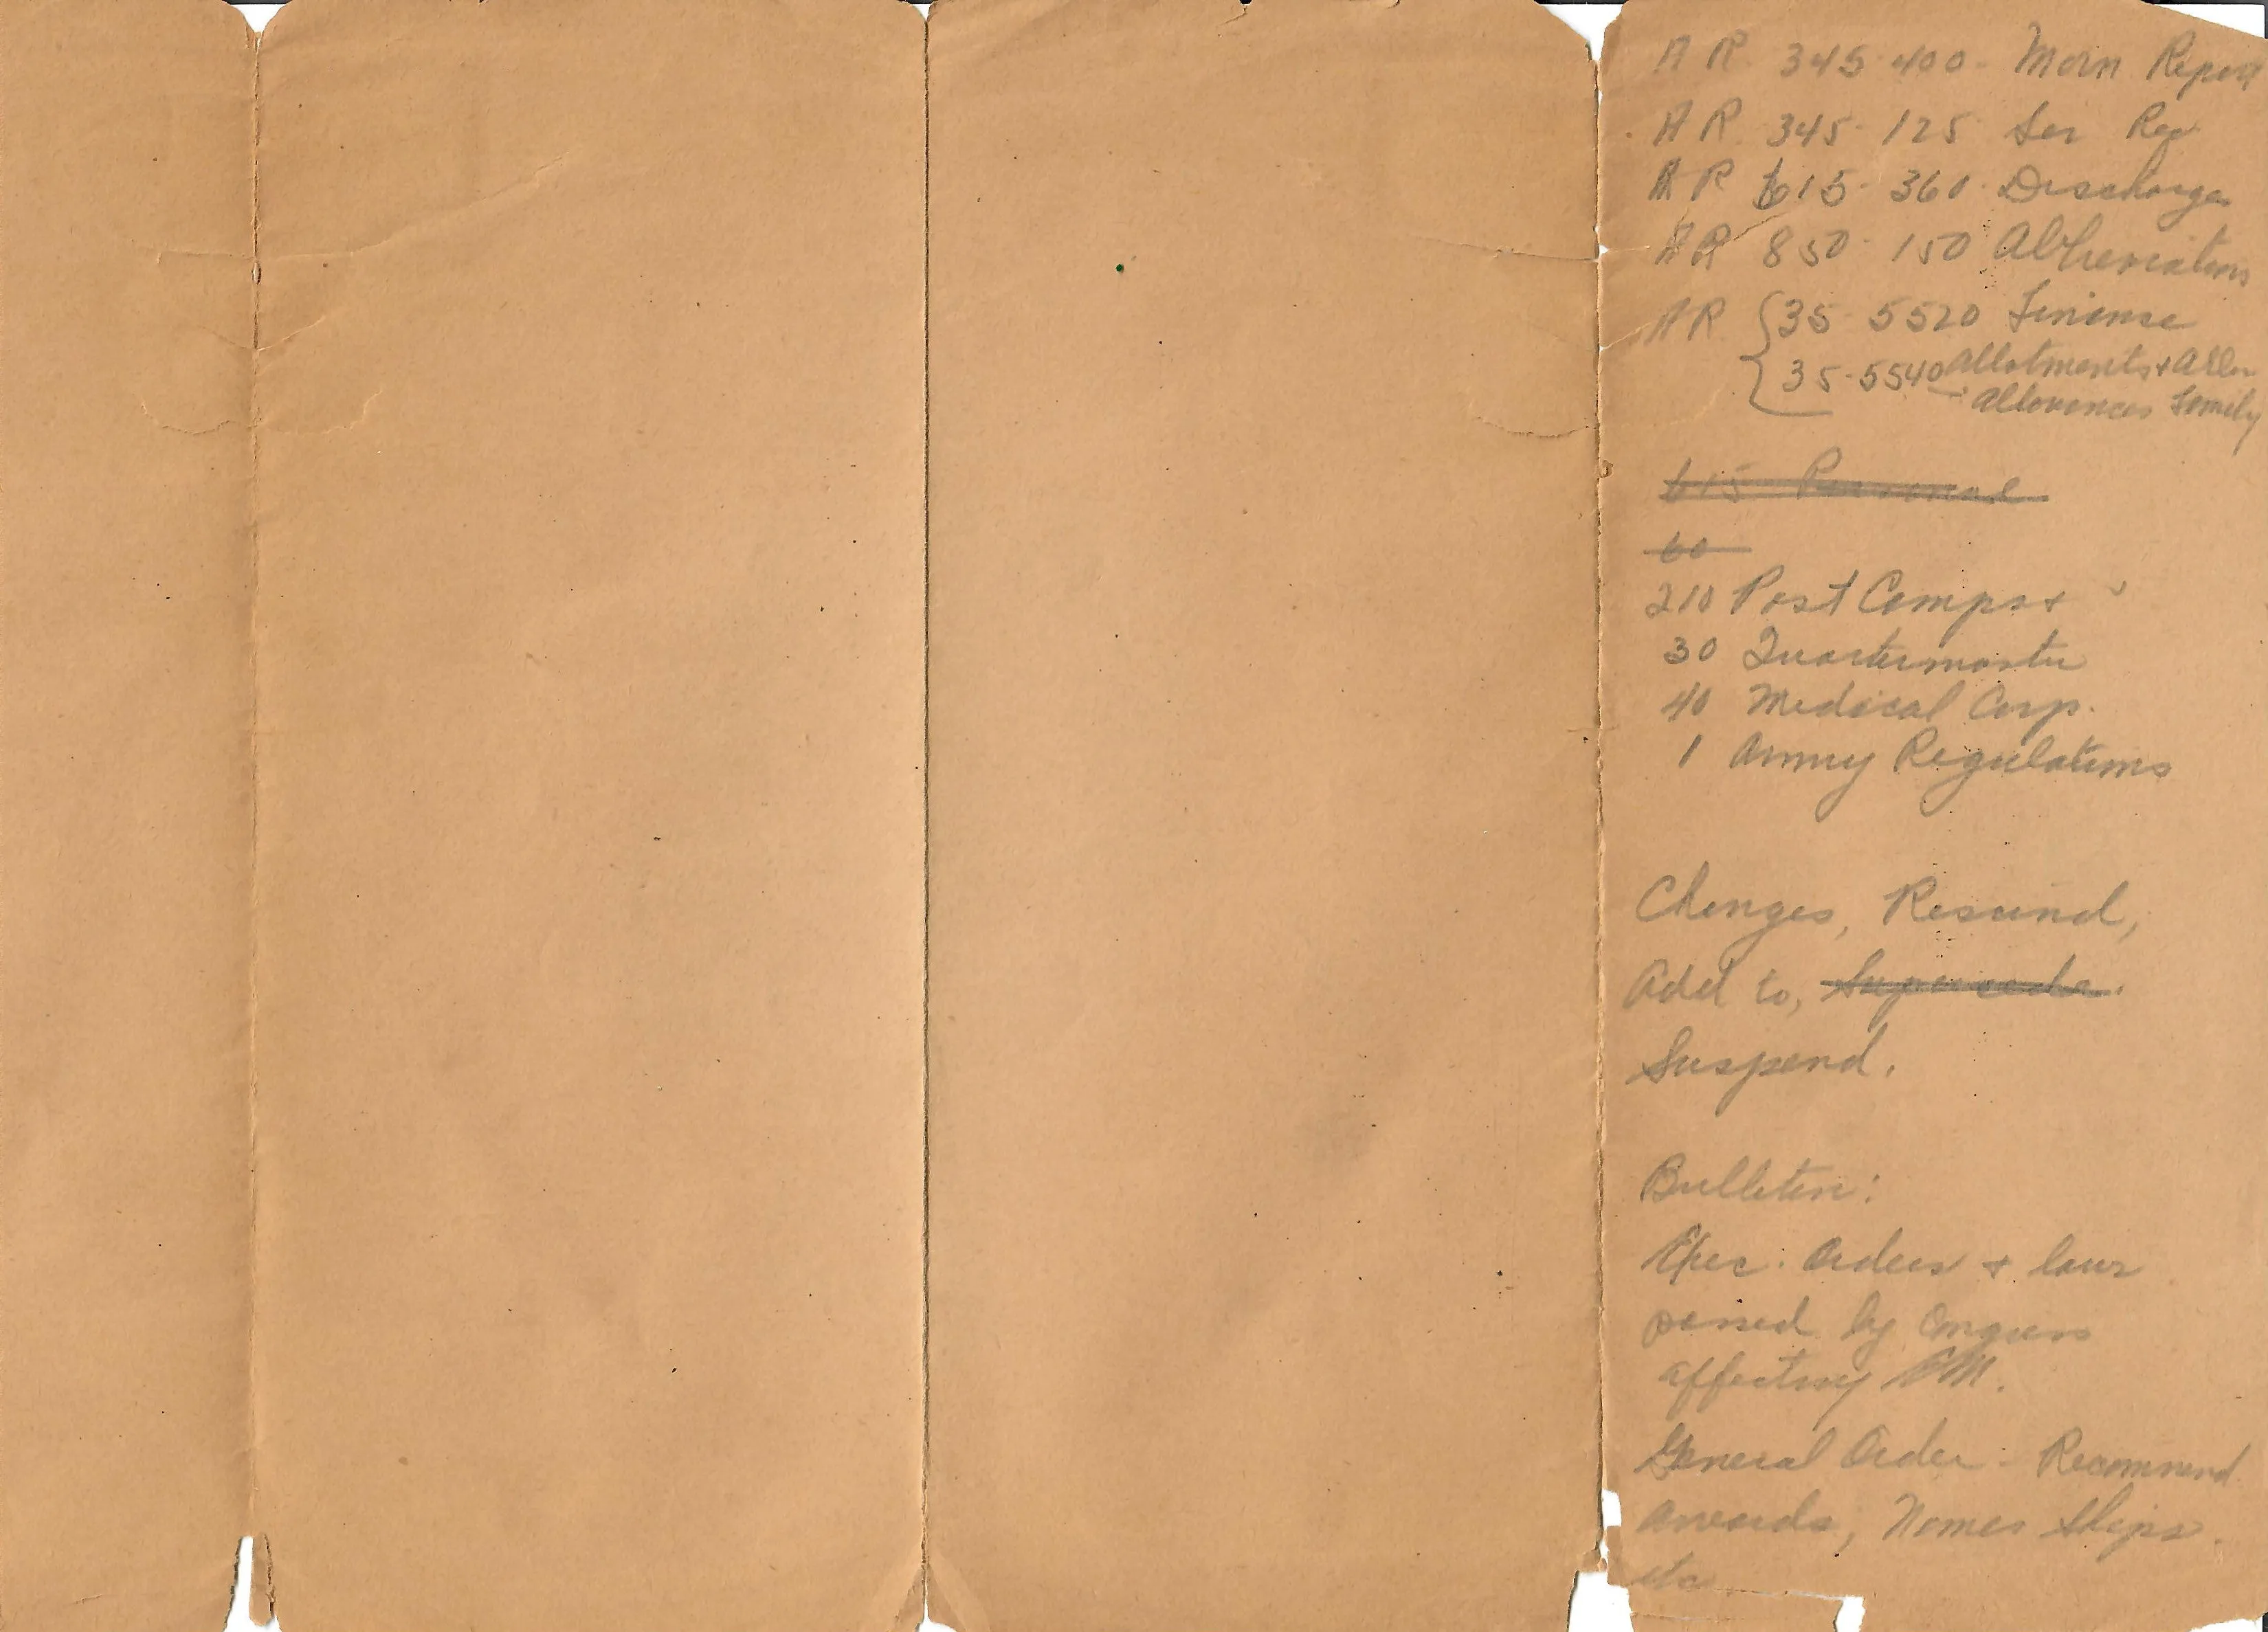 AR 345-400 - Morn Report
AR 345-125 Ser Rec
AR 615-360 Discharges
AR 850-150 Abbreviations
AR 35-5520 Finance
35-5540 Allotments + Allow
Allowances Family
615 Personal
60
210 Post Camps +
30 Quartermaster
40 Medical Corp.
1 Army Regulations
Changes, Rescind,
Add to, Supercede.
Suspend.
Bulletin:
Exec. Orders + laws
passed by Congress
affecting
General Order - Recommend
awards, Names Ships.
etc